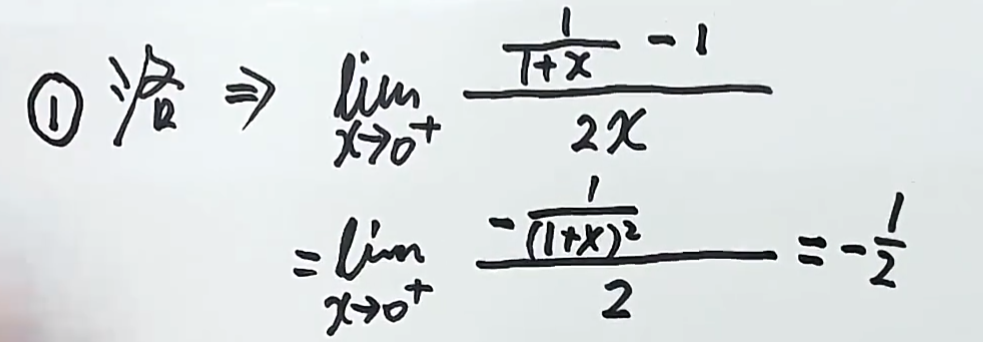 ① 洛 ⇒ lim_{x→0⁺} \frac{\frac{1}{1+x} - 1}{2x}
= lim_{x→0⁺} \frac{-\frac{1}{(1+x)^2}}{2} = -\frac{1}{2}